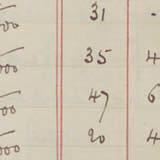 00 31 -
000 35 4
000 47 6
000 20 4